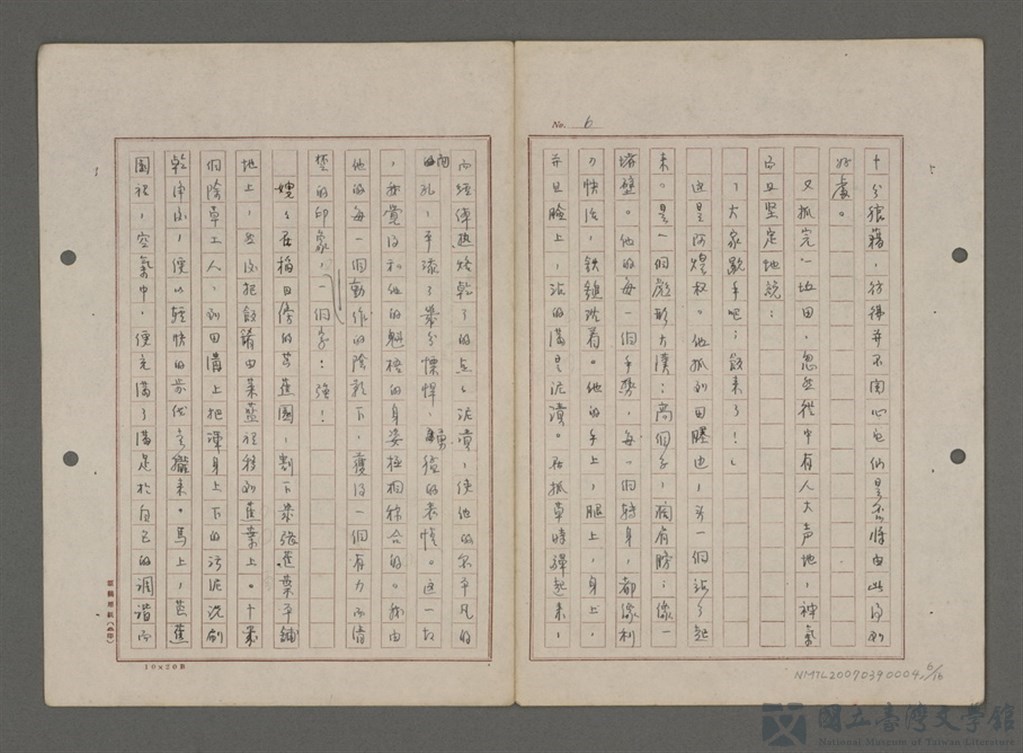 No. 6
十分狼藉，彷彿并不関心它们是否将由此得到
好處。
又抓完一坵田，忽然從中有人大声地，神氣
而且坚定地說：
「大家歇手吧；飯来了！」
這是阿煌叔。他抓到田塍边，第一個站了起
来。是一個彪形大漢：高個子，濶肩膀；像一
堵壁。他的每一個手勢，每一個轉身，都像利
刀快治，鉄鎚洗着。他的手上，腿上，身上，
并且臉上，沾的满是泥漬。在抓草時彈起来，
而經俥热烙乾了的点々泥漬，使他的不平凡的
面孔，平添了幾分慓悍、勇猛的表情。這一切
，我覺得和他的魁梧的身姿極相稱合的。我由
他的每一個動作的陰影下，獲得一個有力而清
楚的印象，一個字：強！
嫂々在梅田傍的芎蕉園，割下幾張蕉葉平鋪
地上，然後把飯鍋由菜籃裡移到蕉葉上。十幾
個除草工人，到田溝上把渾身上下的污泥洗刷
乾淨後，便以輕快的步伐走攏来。馬上，芭蕉
園裡，空氣中，便充满了滿足於自己的調諧而
10×20
NMTL20070390004, 6/16
國立臺灣文學館
National Museum of Taiwan Literature